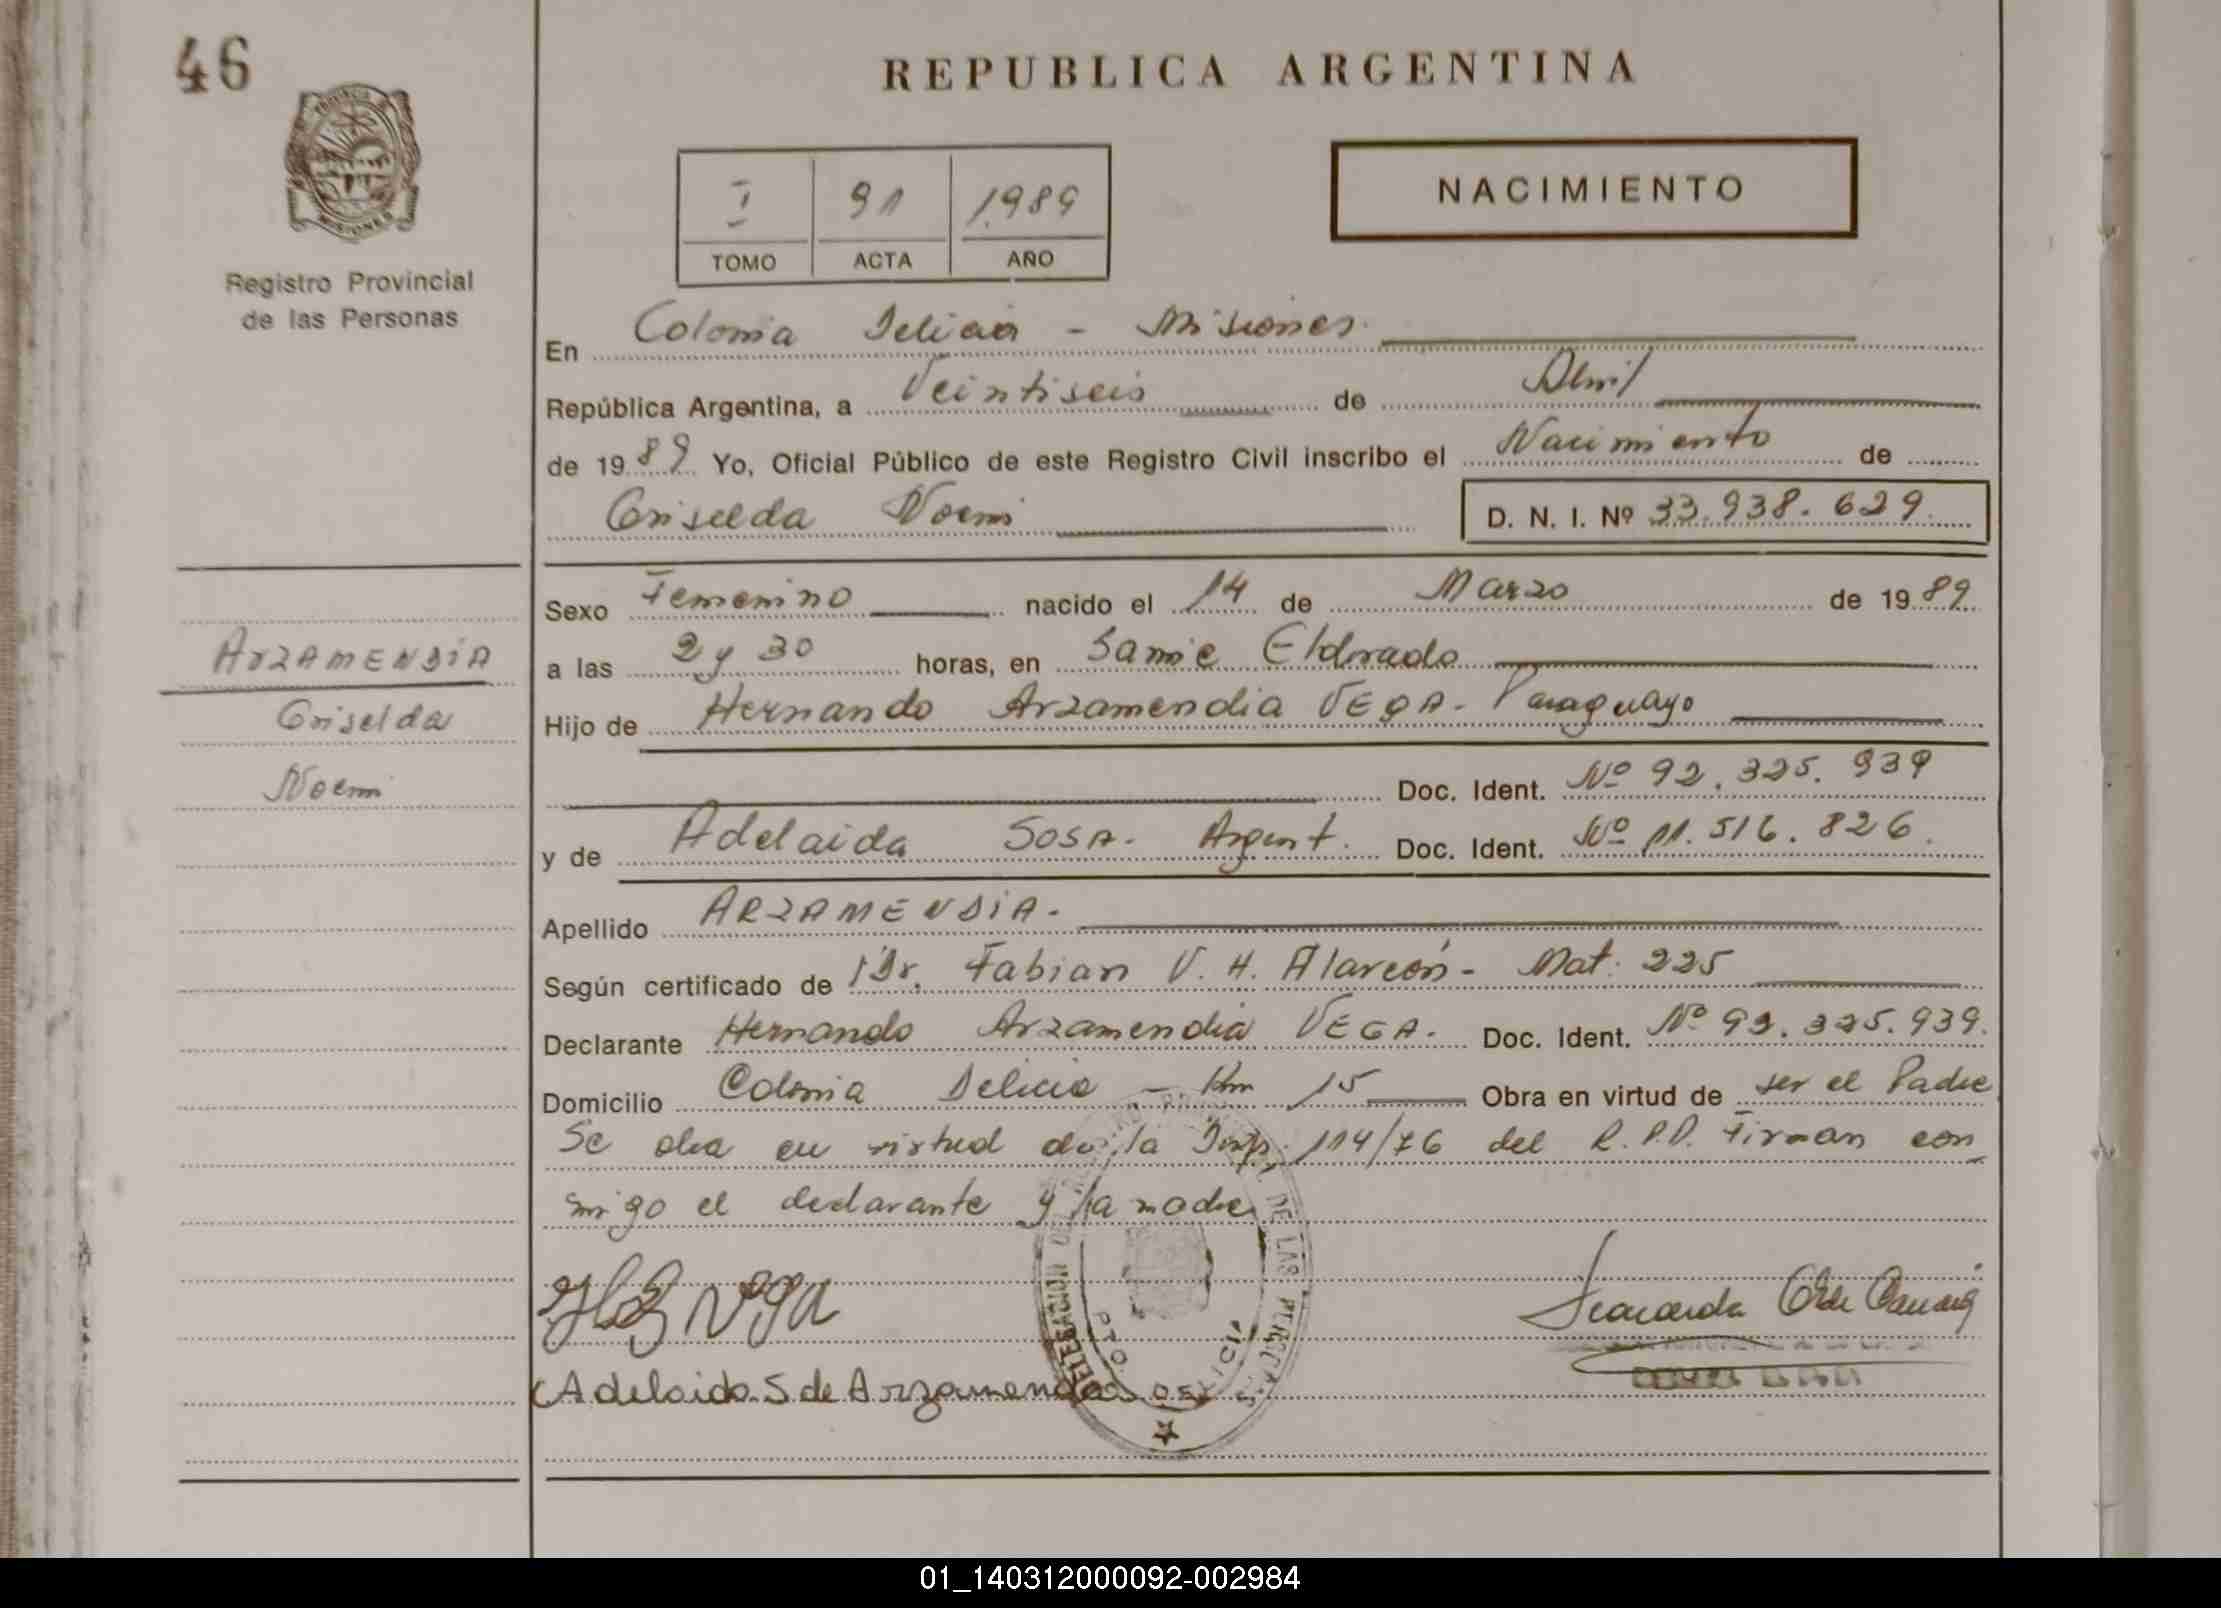 46
REPUBLICA ARGENTINA
PROVINCIA DE
MISIONES
Registro Provincial
de las Personas
I 91 1989
TOMO ACTA AÑO
NACIMIENTO
En Colonia Delicia - Misiones.
República Argentina, a Veintiseis de Abril
de 1989 Yo, Oficial Público de este Registro Civil inscribo el Nacimiento de
Griselda Noemi D. N. I. Nº 33.938.629
Sexo Femenino nacido el 14 de Marzo de 1989
a las 2 y 30 horas, en Samic Eldorado
Hijo de Hernando Arzamendia VEGA - Paraguayo
Doc. Ident. Nº 92.325.939
y de Adelaida SOSA - Argent. Doc. Ident. Nº 11.516.826
Apellido ARZAMENDIA.
Según certificado de Dr. Fabian V. H. Alarcón - Mat: 225
Declarante Hernando Arzamendia VEGA. Doc. Ident. Nº 92.325.939.
Domicilio Colonia Delicia - Km 15 Obra en virtud de ser el Padre
Se obra en virtud de la Disp. 114/76 del R.P.P. Firman con
migo el declarante y la madre
ARZAMENDIA
Griselda
Noemi
Vega
Adelaida S de Arzamendia
DELEGACION
DE LAS PERSONAS
PTO. DELICIA
01_140312000092-002984